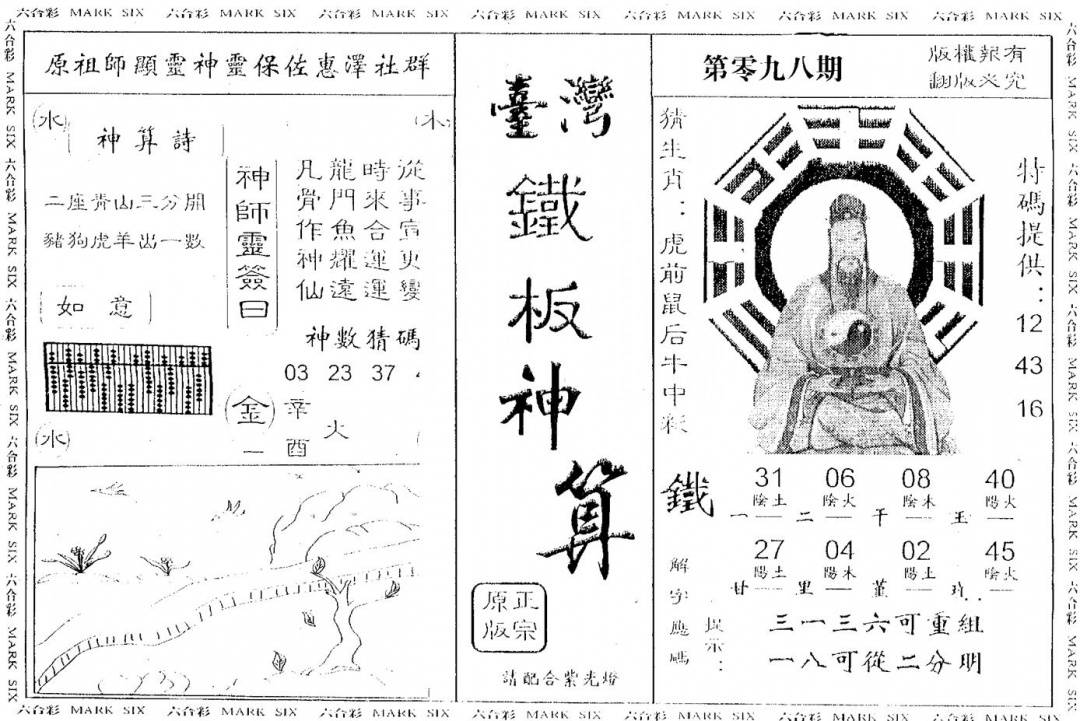 六合彩 MARK SIX 六合彩 MARK SIX 六合彩 MARK SIX 六合彩 MARK SIX 六合彩 MARK SIX 六合彩 MARK SIX 六合彩 MARK SIX
原祖師顯靈神靈保佐惠澤社群
水
神算詩
二座青山三分開
豬狗虎羊出一數
如意
水
神師靈簽曰
從事宜更變
時來合運運
龍門魚耀遠
凡骨作神仙
神數猜碼
03 23 37
金 辛酉 火
一
臺灣
鐵
板
神
算
正宗
原版
請配合紫光燈
第零九八期
版權報有
翻版必究
猜生肖：虎前鼠后牛中彩
特碼提供：
12
43
16
鐵
31 06 08 40
陰土 陰火 陰木 陽火
一 二 干 王
27 04 02 45
陽土 陽木 陽土 陰火
甘 里 堇 玪
解字應碼
提示：
三一三六可重組
一八可從二分明
六合彩 MARK SIX 六合彩 MARK SIX 六合彩 MARK SIX 六合彩 MARK SIX 六合彩 MARK SIX 六合彩 MARK SIX 六合彩 MARK SIX